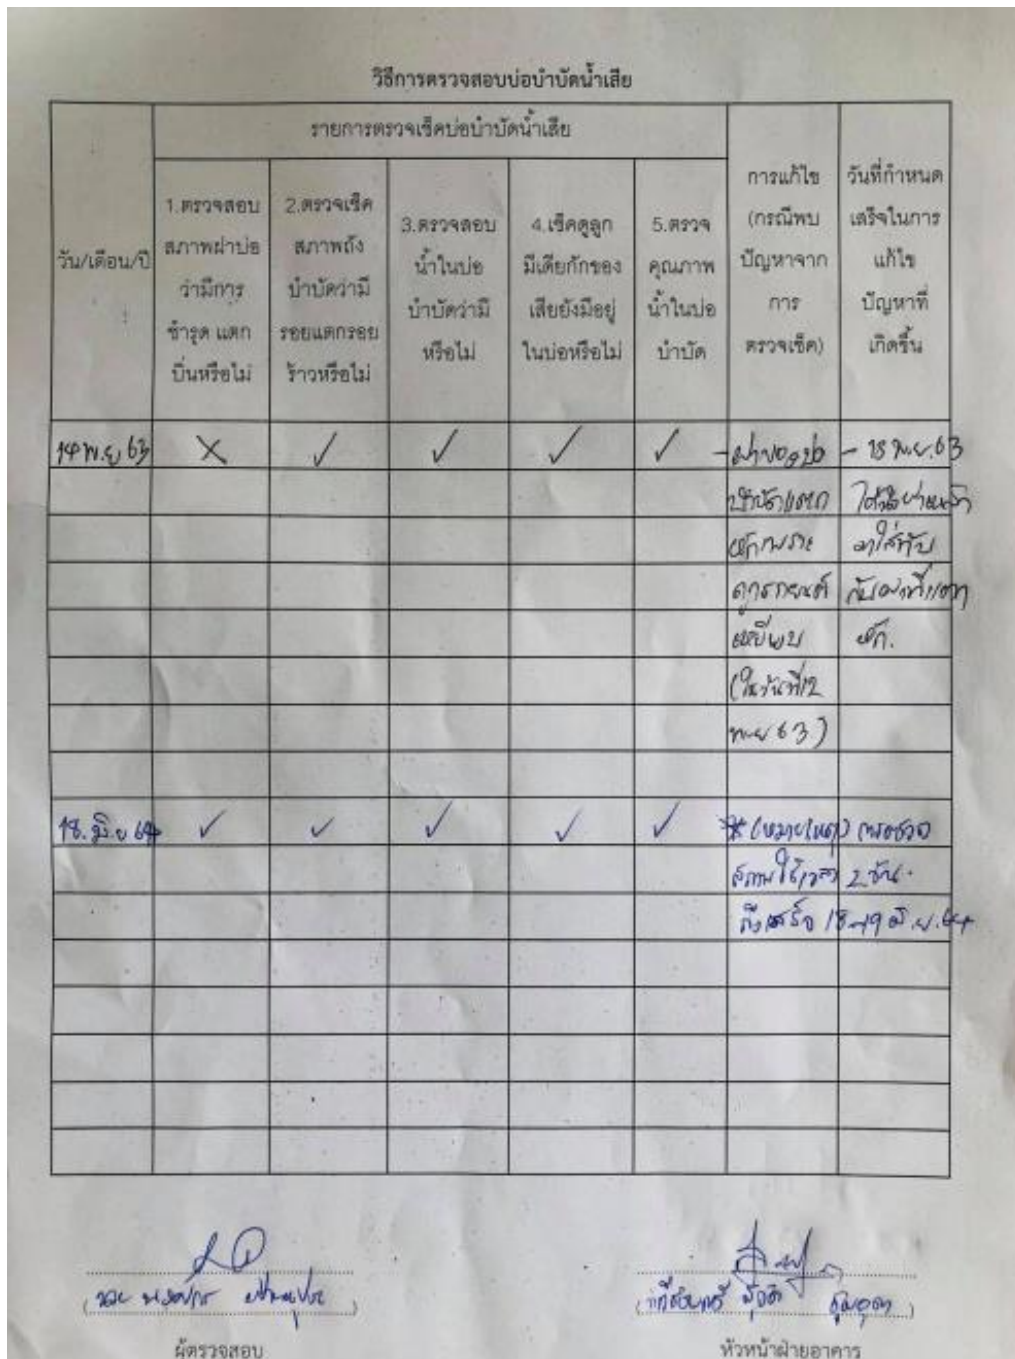 วิธีการตรวจสอบบ่อบำบัดน้ำเสีย
รายการตรวจเช็คบ่อบำบัดน้ำเสีย
วัน/เดือน/ปี
1.ตรวจสอบ
สภาพฝาบ่อ
ว่ามีการ
ชำรุด แตก
บิ่นหรือไม่
2.ตรวจเช็ค
สภาพถัง
บำบัดว่ามี
รอยแตกรอย
ร้าวหรือไม่
3.ตรวจสอบ
น้ำในบ่อ
บำบัดว่ามี
หรือไม่
4.เช็คดูลูก
มีเดียกักของ
เสียยังมีอยู่
ในบ่อหรือไม่
5.ตรวจ
คุณภาพ
น้ำในบ่อ
บำบัด
การแก้ไข
(กรณีพบ
ปัญหาจาก
การ
ตรวจเช็ค)
วันที่กำหนด
เสร็จในการ
แก้ไข
ปัญหาที่
เกิดขึ้น
14 พ.ย 63 ✗ ✓ ✓ ✓ ✓ - ฝาของบ่อ - 18 พ.ย. 63
บำบัดแตก
หักเพราะ มาใส่ทับ
ถูกรถยนต์ กับฝาที่แตก
เหยียบ หัก.
(ในวันที่ 12
พ.ย 63)
18. มิ.ย 64 ✓ ✓ ✓ ✓ ✓ * (หมายเหตุ) ตรวจ
สภาพใช้เวลา 2 วัน.
ถึงเสร็จ 18-19 มิ.ย. 64
ผู้ตรวจสอบ
หัวหน้าฝ่ายอาคาร